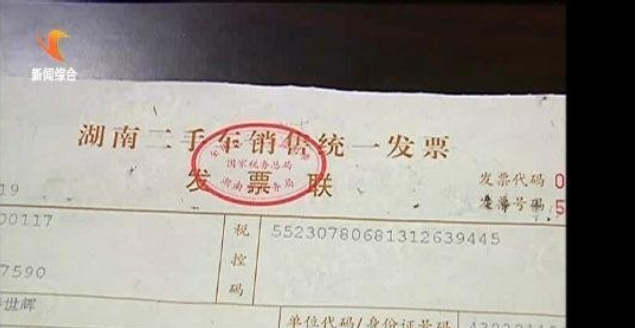 新闻综合
湖南二手车销售统一发票
国家税务总局
发票联
发票代码 0
发票号码 5
19
00117
税控码
55230780681312639445
7590
世辉
单位代码/身份证号码